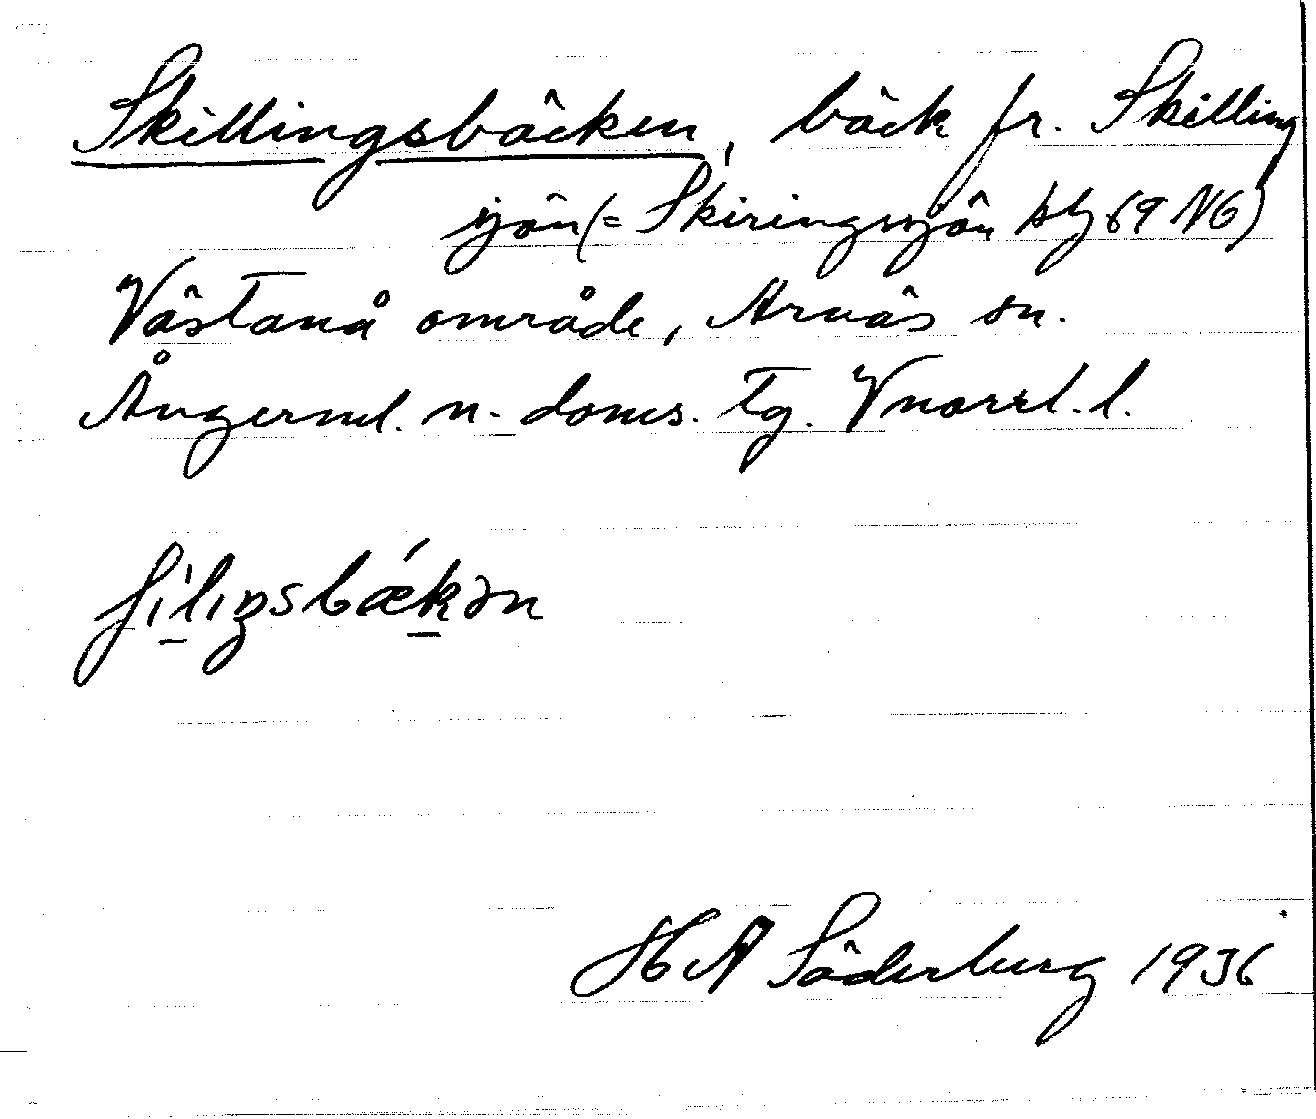 Skillingsbäcken, bäck fr. Skilling
sjön (= Skiringssjön bl 69 NG)
Västanå område, Arnäs sn.
Ångerml. n. doms. tg. Vnorrl. l.
ʃilıŋsbǽkən
H A Söderberg 1936